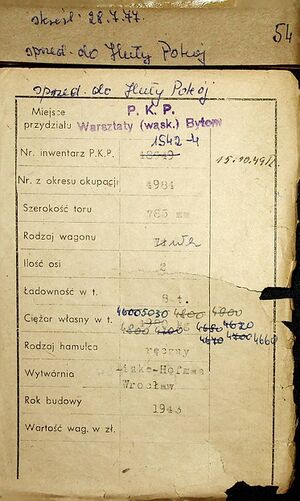 skreśl. 28.7.77.
54
sprzed. do Huty Pokój
sprzed. do Huty Pokój
Miejsce przydziału P. K. P.
Warsztaty (wąsk.) Bytom
1542-4
Nr. inwentarz P.K.P. 15.10.49
Nr. z okresu okupacji 4984
Szerokość toru 785 mm
Rodzaj wagonu
Ilość osi 2
Ładowność w t. 8 t.
46005030 4800 4900
Ciężar własny w t.
4800 4700 4650 4620
4670 4700 4660
Rodzaj hamulca ręczny
Wytwórnia Linke-Hofman
Wrocław
Rok budowy 1943
Wartość wag. w zł.